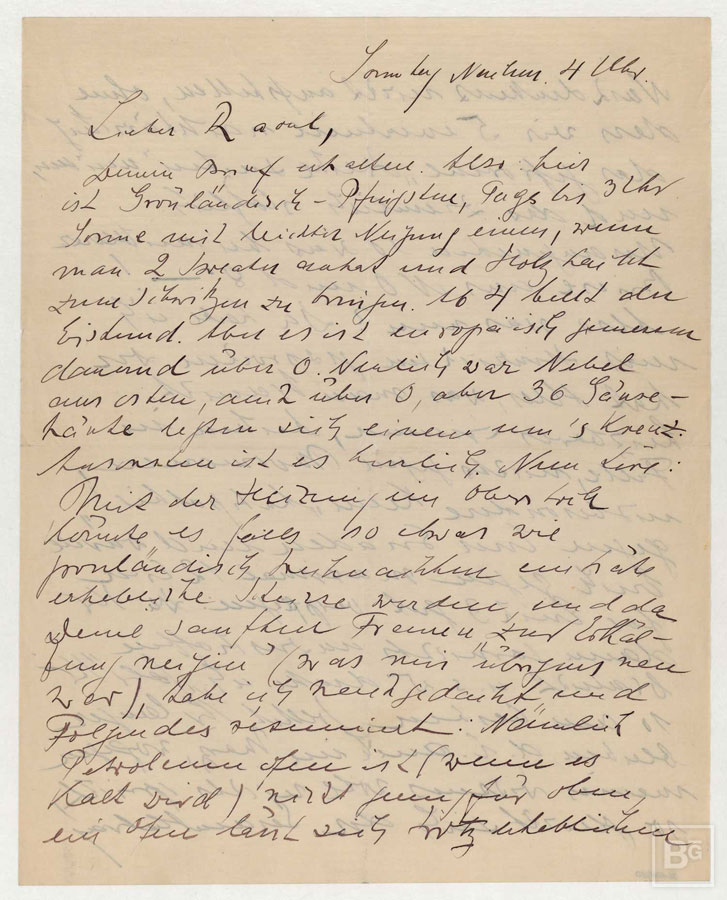 Sonntag Nachm. 4 Uhr.
Lieber Raoul,
Deinen Brief erhalten. Also: hier
ist Grönländisch-Pfingsten, Tags bis 3 Uhr
Sonne mit leichter Neigung einen, wenn
man 2 Sweater anhat und Holz hackt
zum Schwitzen zu bringen. Ab 4 bellt der
Eishund. Aber es ist europäisch gemessen
dauernd über 0. Neulich war Nebel
aus Osten, auch über 0, aber 36 Gänse-
häute legten sich einem um's Kreuz.
Ansonsten ist es herrlich. Nun höre:
Mit der Heizung im Oberstock
könnte es, falls so etwas wie
grönländisch Weihnachten einträte
erhebliche werden, und da
Deine sanften Frauen "zur Erkäl-
tung neigen" (was mir übrigens neu
war), habe ich nachgedacht und
Folgendes resumiert: Nämlich
Petroleumofen ist (wenn es
kalt wird) nicht genug für oben,
ein Ofen lässt sich trotz erheblichen
BG